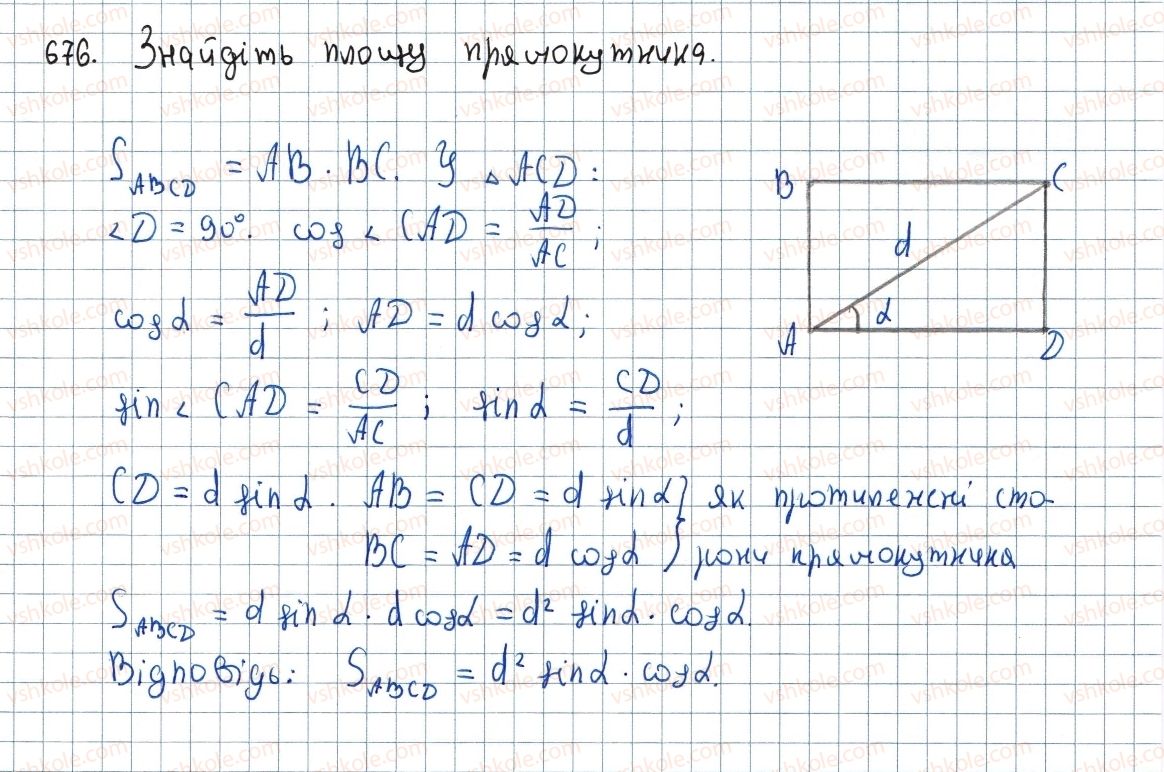 676. Знайдіть площу прямокутника.
S_ABCD = AB · BC. У △ ACD:
∠D = 90°. cos ∠ CAD = AD/AC ;
cos α = AD/d ; AD = d cos α;
sin ∠ CAD = CD/AC ; sin α = CD/d ;
CD = d sin α. AB = CD = d sin α } як протилежні сто-
BC = AD = d cos α } рони прямокутника
S_ABCD = d sin α · d cos α = d² sin α · cos α.
Відповідь: S_ABCD = d² sin α · cos α.
B
C
d
α
A
D
vshkole.com